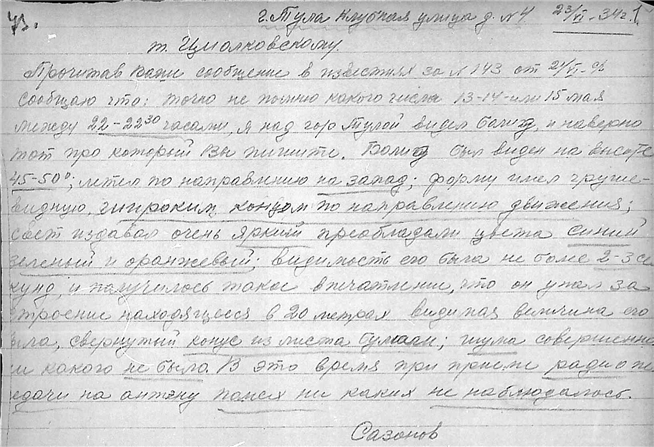 г. Тула Клубная улица д. №4 23/VI-34г.
т. Циолковскому.
Прочитав Ваши сообщение в известиях за №143 от 21/VI-
сообщаю что: точно не помню какого числа 13-14-или 15 мая
между 22-22³⁰ часами, я над гор Тулой видел болид, и наверно
тот про который Вы пишите. Болид был виден на высоте
45-50°; летел по направлению на запад; форму имел груше-
видную, широким концом по направлению движения;
свет издавал очень яркий преобладали цвета синий
зеленый и оранжевый; видимость его была не более 2-3 се
кунд, и получилось такое впечатление, что он упал за
строение находящееся в 20 метрах видимая величина его
была, свернутый конус из листа бумаги; шума совершенно
ни какого не было. В это время при приеме радио пе
редачи на антэну помех ни каких не наблюдалось.
Сазонов